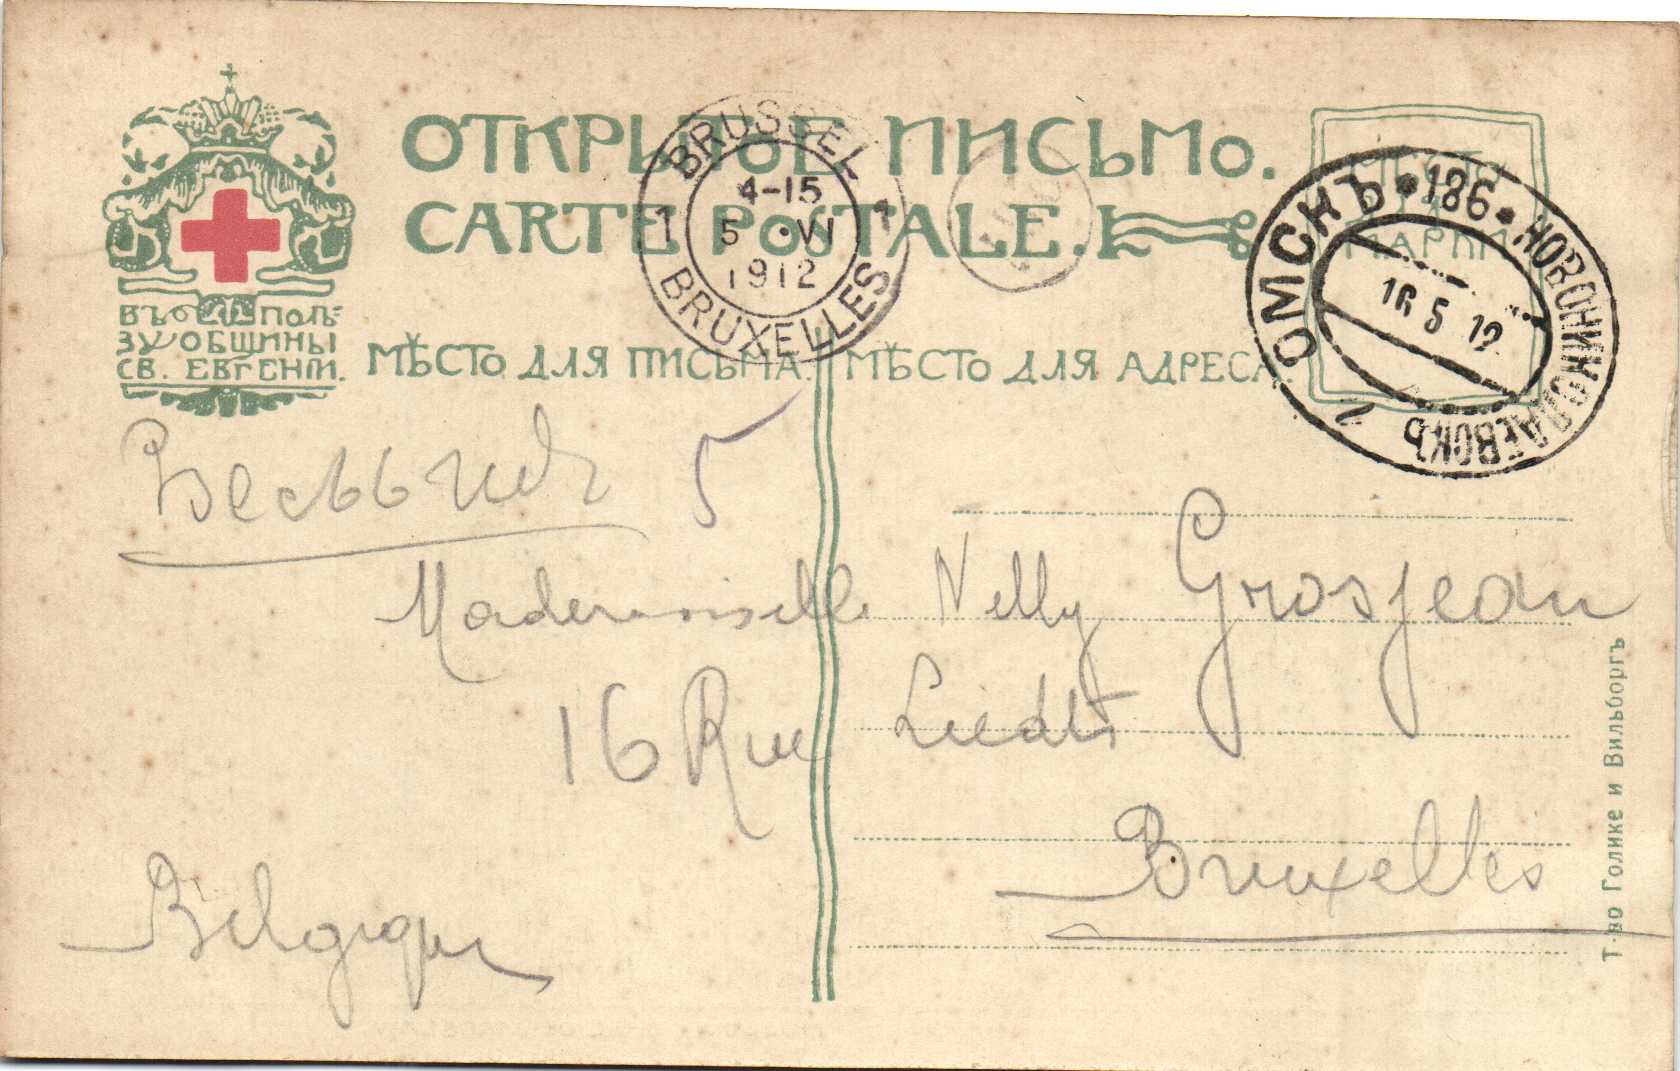 ОТКРЫТОЕ ПИСЬМО.
CARTE POSTALE.
ВЪ ПОЛЬ-
ЗУ ОБЩИНЫ
СВ. ЕВГЕНІИ.
МѢСТО ДЛЯ ПИСЬМА.
МѢСТО ДЛЯ АДРЕСА.
МѢСТО
ДЛЯ
МАРКИ
BRUSSEL
1 1
4-15
5 ·VI
1912
BRUXELLES
ОМСКЪ * 186 * НОВОНИКОЛАЕВСКЪ
16 5 12
1
Бельгия 5
Mademoiselle Nelly Grosjean
16 Rue Liedts
Bruxelles
Belgique
Т-во Голике и Вильборгъ